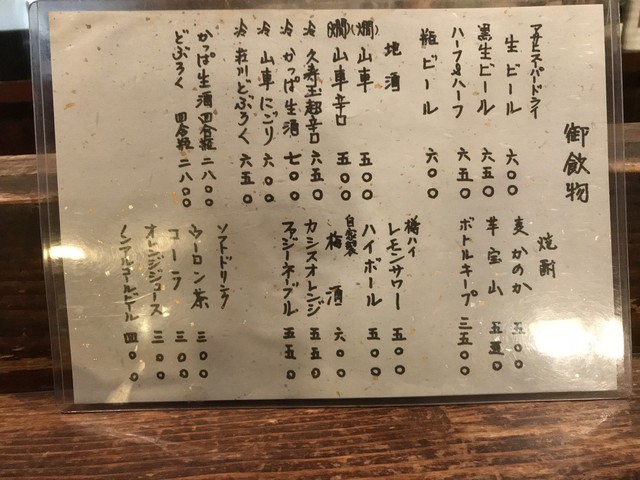 御飲物
アサヒスーパードライ
生ビール 六〇〇
黒生ビール 六五〇
ハーフ&ハーフ 六五〇
瓶ビール 六〇〇
地酒
(燗) 山車 五〇〇
(燗) 山車辛口 五〇〇
冷 久寿玉超辛口 六五〇
冷 かっぱ生酒 七〇〇
冷 山車にごり 六〇〇
冷 荘川どぶろく 六五〇
かっぱ生酒 四合瓶 二八〇〇
どぶろく 四合瓶 二八〇〇
焼酎
麦 かのか 五〇〇
芋 宝山 五五〇
ボトルキープ 三五〇〇
酎ハイ
レモンサワー 五〇〇
ハイボール 五〇〇
自家製
梅酒 六〇〇
カシスオレンジ 五五〇
ファジーネーブル 五五〇
ソフトドリンク
ウーロン茶 三〇〇
コーラ 三〇〇
オレンジジュース 三〇〇
ノンアルコールビール 四〇〇